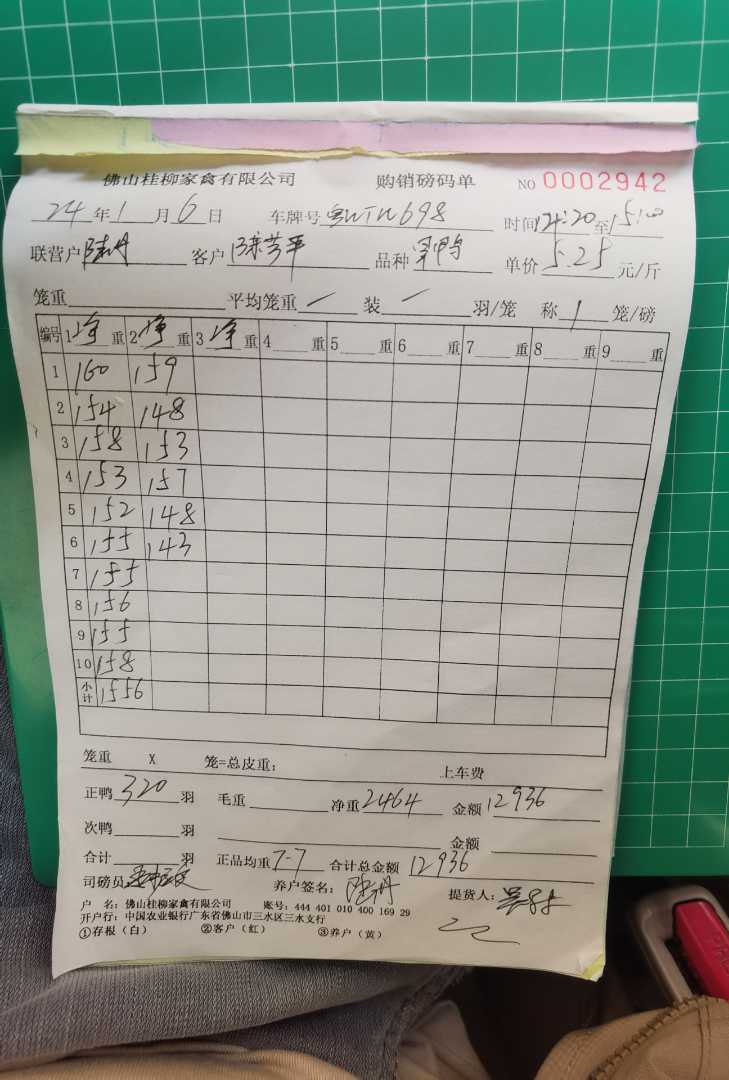 佛山桂柳家禽有限公司 购销磅码单 NO 0002942
24年1月6日 车牌号 粤WTW698 时间14:20至15:00
联营户 陆丹 客户 陈芳平 品种 单价 5.25 元/斤
笼重 平均笼重 / 装 / 羽/笼 称 1 笼/磅
编号 1净重 2净重 3净重 4重 5重 6重 7重 8重 9重
1 160 159
2 154 148
3 158 153
4 153 157
5 152 148
6 155 143
7 155
8 156
9 155
10 158
小计 1556
笼重 X 笼=总皮重: 上车费
正鸭 320 羽 毛重 净重 2464 金额 12936
次鸭 羽 金额
合计 羽 正品均重 7-7 合计总金额 12936
司磅员 养户签名: 陆丹 提货人:
户 名: 佛山桂柳家禽有限公司 账号: 444 401 010 400 169 29
开户行: 中国农业银行广东省佛山市三水区三水支行
①存根(白) ②客户(红) ③养户(黄)